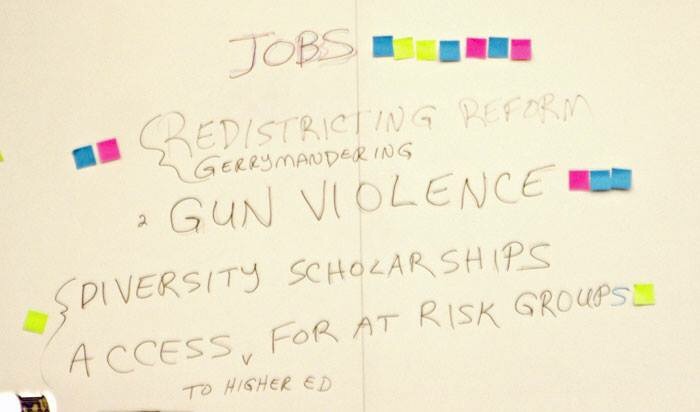 JOBS
REDISTRICTING REFORM
GERRYMANDERING
2 GUN VIOLENCE
DIVERSITY SCHOLARSHIPS
ACCESS, FOR AT RISK GROUPS
TO HIGHER ED